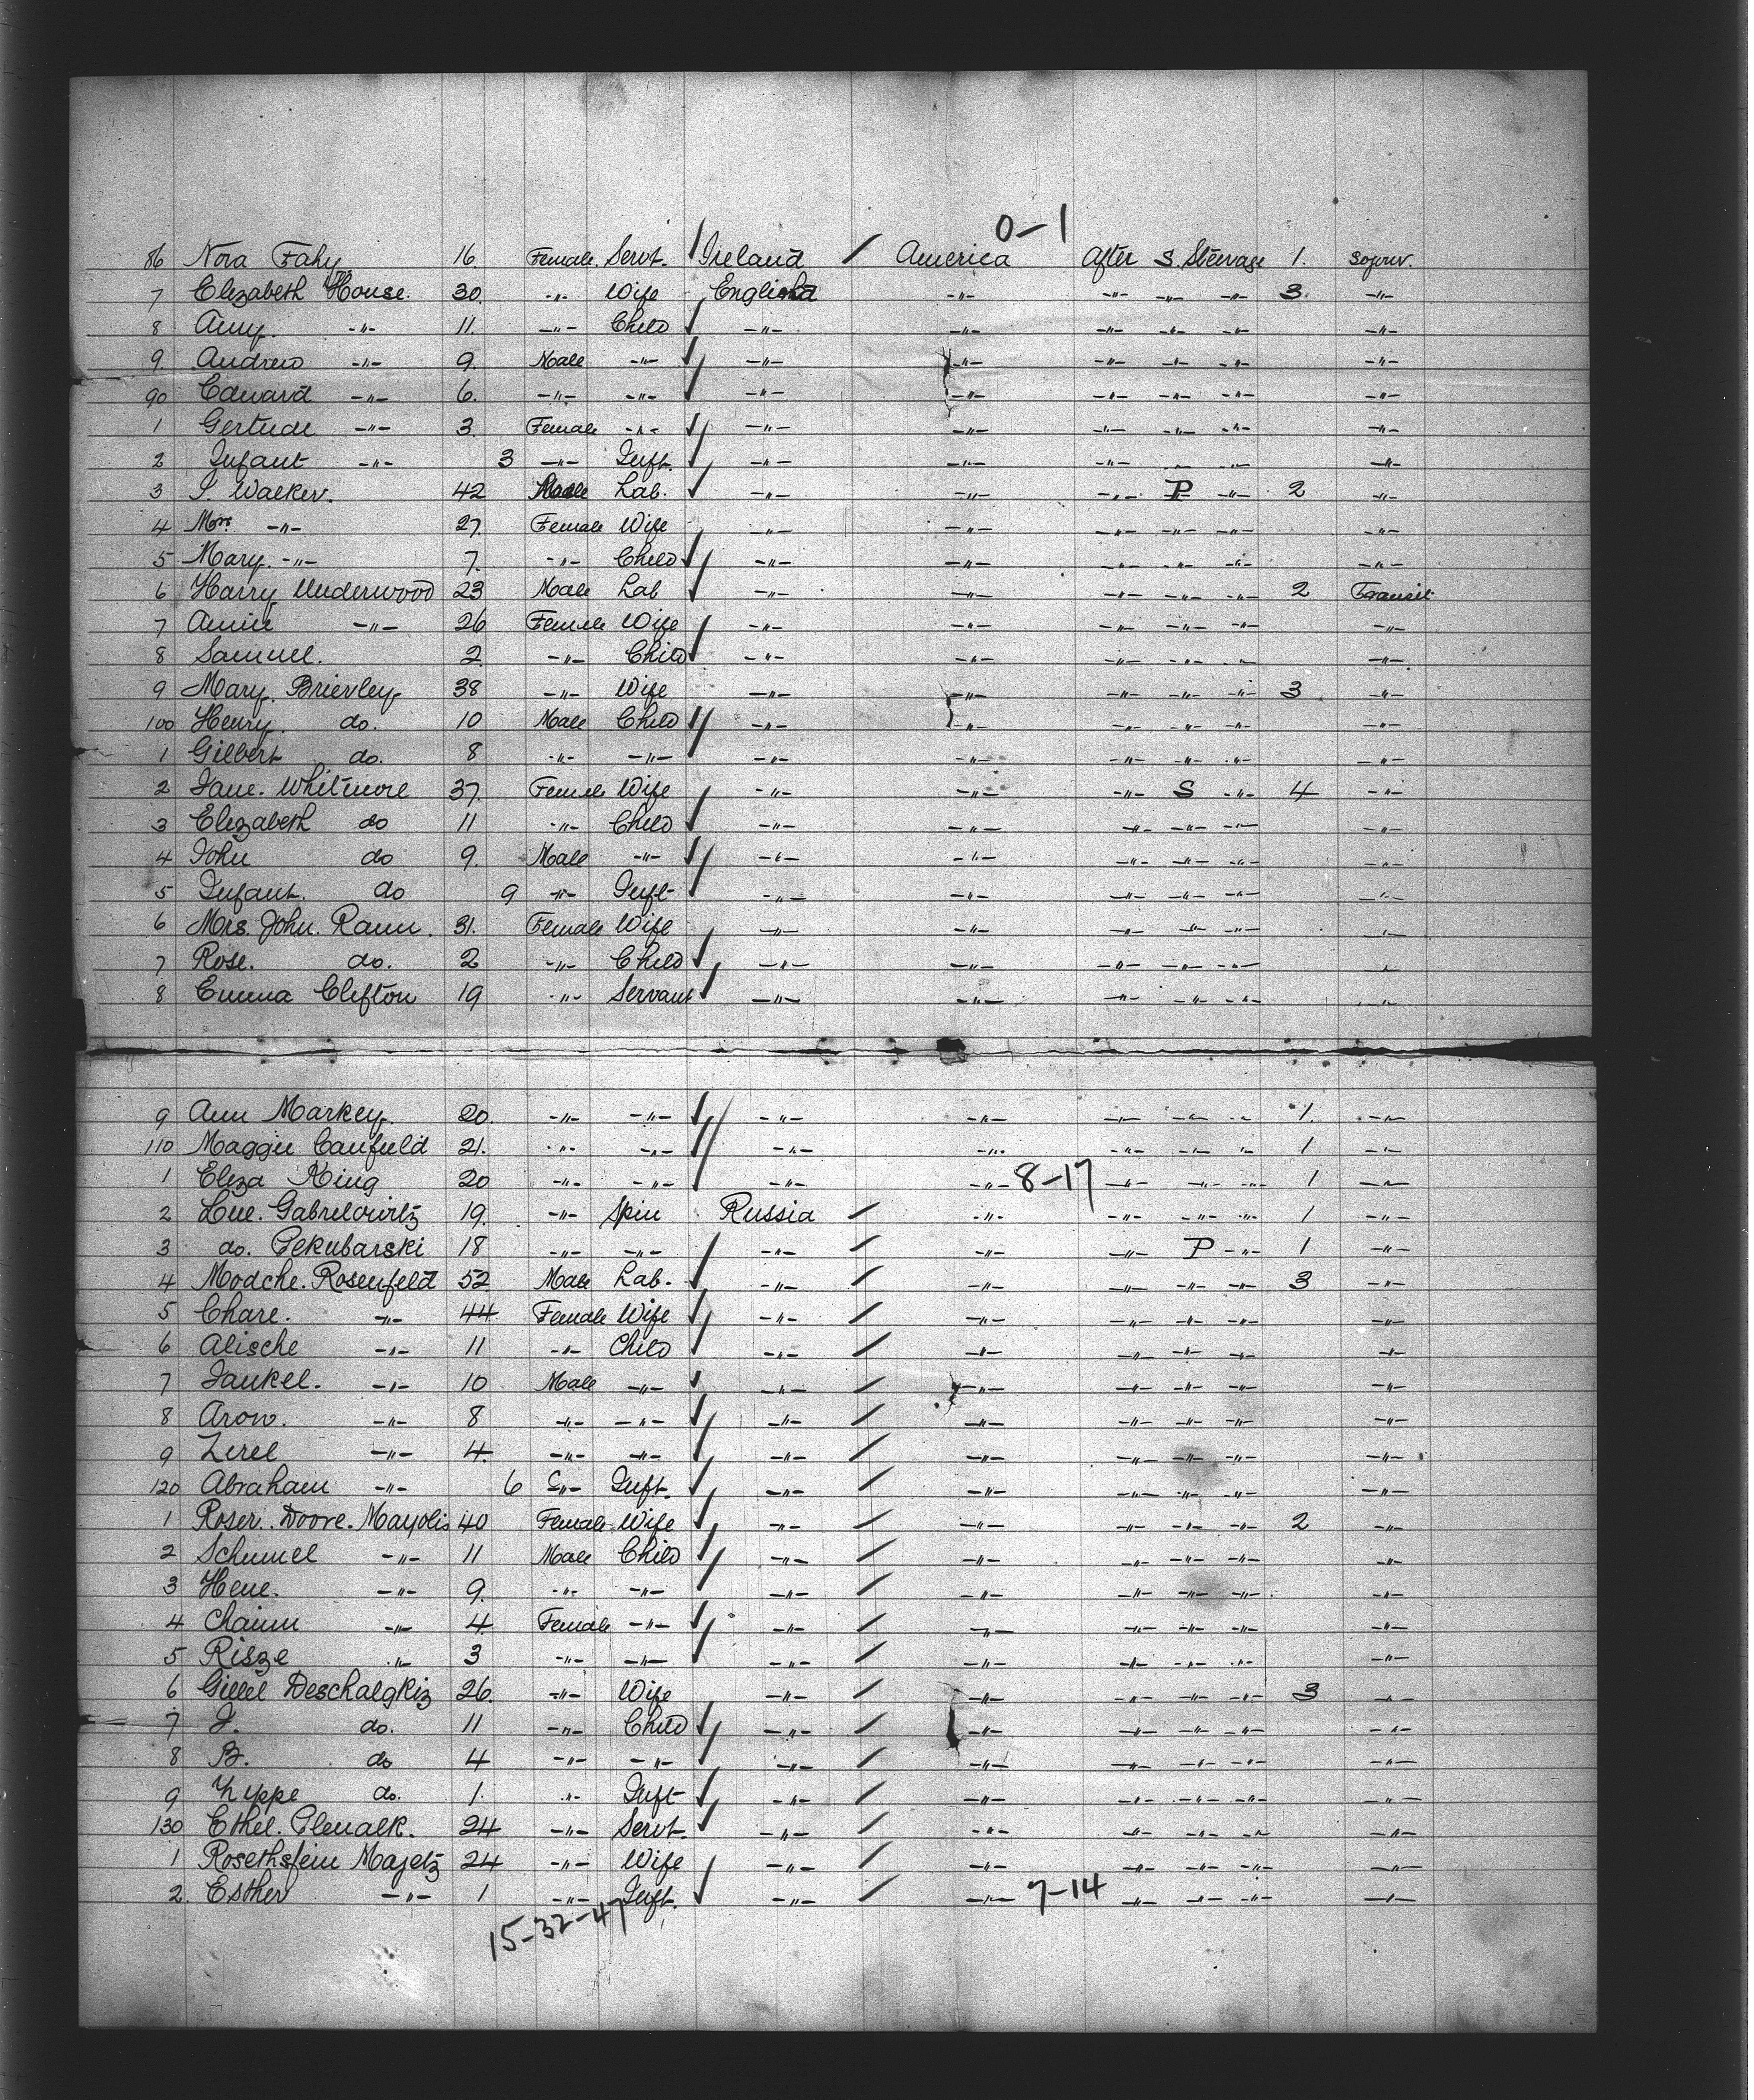 0-1
86 Nora Fahy 16. Female. Servt. Ireland America After S. Steerage 1. Sojour.
7 Elizabeth House. 30. -"- Wife England -"- -"- -"- -"- 3. -"-
8 Amy. -"- 11. -"- Child -"- -"- -"- -"- -"- -"-
9. Andrew -"- 9. Male -"- -"- -"- -"- -"- -"- -"-
90 Edward -"- 6. -"- -"- -"- -"- -"- -"- -"- -"-
1 Gertude -"- 3. Female -"- -"- -"- -"- -"- -"- -"-
2 Infant -"- 3 -"- Inft. -"- -"- -"- -"- -"- -"-
3 J. Walker. 42 Male Lab. -"- -"- -"- P -"- 2 -"-
4 Mrs -"- 27. Female Wife -"- -"- -"- -"- -"- -"-
5 Mary. -"- 7. -"- Child -"- -"- -"- -"- -"- -"-
6 Harry Underwood 23 Male Lab -"- -"- -"- -"- -"- 2 Transit
7 Annie -"- 26 Female Wife -"- -"- -"- -"- -"- -"-
8 Samuel. 2 -"- Child -"- -"- -"- -"- -"- -"-
9 Mary. Brierley. 38 -"- Wife -"- -"- -"- -"- -"- 3 -"-
100 Henry. do. 10 Male Child -"- -"- -"- -"- -"- -"-
1 Gilbert do. 8 -"- -"- -"- -"- -"- -"- -"- -"-
2 Jane. Whitmore 37. Female Wife -"- -"- -"- S -"- 4 -"-
3 Elizabeth do 11 -"- Child -"- -"- -"- -"- -"- -"-
4 John do 9. Male -"- -"- -"- -"- -"- -"- -"-
5 Infant. do 9 -"- Inft- -"- -"- -"- -"- -"- -"-
6 Mrs. John. Rann. 31. Female Wife -"- -"- -"- -"- -"- -"-
7 Rose. do. 2 -"- Child -"- -"- -"- -"- -"- -"-
8 Emma Clifton 19 -"- Servant -"- -"- -"- -"- -"- -"-
9 Ann Markey. 20. -"- -"- -"- -"- -"- -"- -"- 1. -"-
110 Maggie Canfield 21. -"- -"- -"- -"- -"- -"- -"- 1 -"-
1 Eliza King 20 -"- -"- -"- -"- 8-17 -"- -"- -"- 1 -"-
2 19. -"- Spin Russia -"- -"- -"- -"- 1 -"-
3 do. Pekubarski 18 -"- -"- -"- -"- -"- P -"- 1 -"-
4 Modche. Rosenfeld 52 Male Lab. -"- -"- -"- -"- -"- 3 -"-
5 Chare. -"- 44 Female Wife -"- -"- -"- -"- -"- -"-
6 Alische -"- 11 -"- Child -"- -"- -"- -"- -"- -"-
7 Jankel. -"- 10 Male -"- -"- -"- -"- -"- -"- -"-
8 Aron. -"- 8 -"- -"- -"- -"- -"- -"- -"- -"-
9 Zerel -"- 4. -"- -"- -"- -"- -"- -"- -"- -"-
120 Abraham -"- 6 -"- Inft. -"- -"- -"- -"- -"- -"-
1 Roser. Doore. Mayolis 40 Female Wife -"- -"- -"- -"- -"- 2 -"-
2 Schumel -"- 11 Male Child -"- -"- -"- -"- -"- -"-
3 Hene. -"- 9. -"- -"- -"- -"- -"- -"- -"- -"-
4 Chaim -"- 4. Female -"- -"- -"- -"- -"- -"- -"-
5 Risze -"- 3 -"- -"- -"- -"- -"- -"- -"- -"-
6 Gittel Deschalgkiz 26. -"- Wife -"- -"- -"- -"- -"- 3 -"-
7 J. do. 11 -"- Child -"- -"- -"- -"- -"- -"-
8 B. do 4 -"- -"- -"- -"- -"- -"- -"- -"-
9 do. 1. -"- Inft- -"- -"- -"- -"- -"- -"-
130 Ethel. Plenalk. 24 -"- Servt. -"- -"- -"- -"- -"- -"-
1 Rosethsfein Majetz 24 -"- Wife -"- -"- -"- -"- -"- -"-
2. Esther -"- 1 -"- Inft. -"- -"- 7-14 -"- -"- -"- -"-
15-32-47